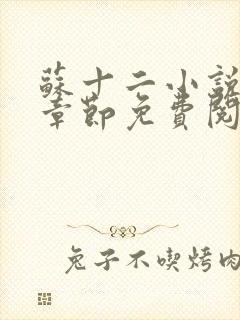 蘇十二小說
章節免費閱
兔子不喫烤肉